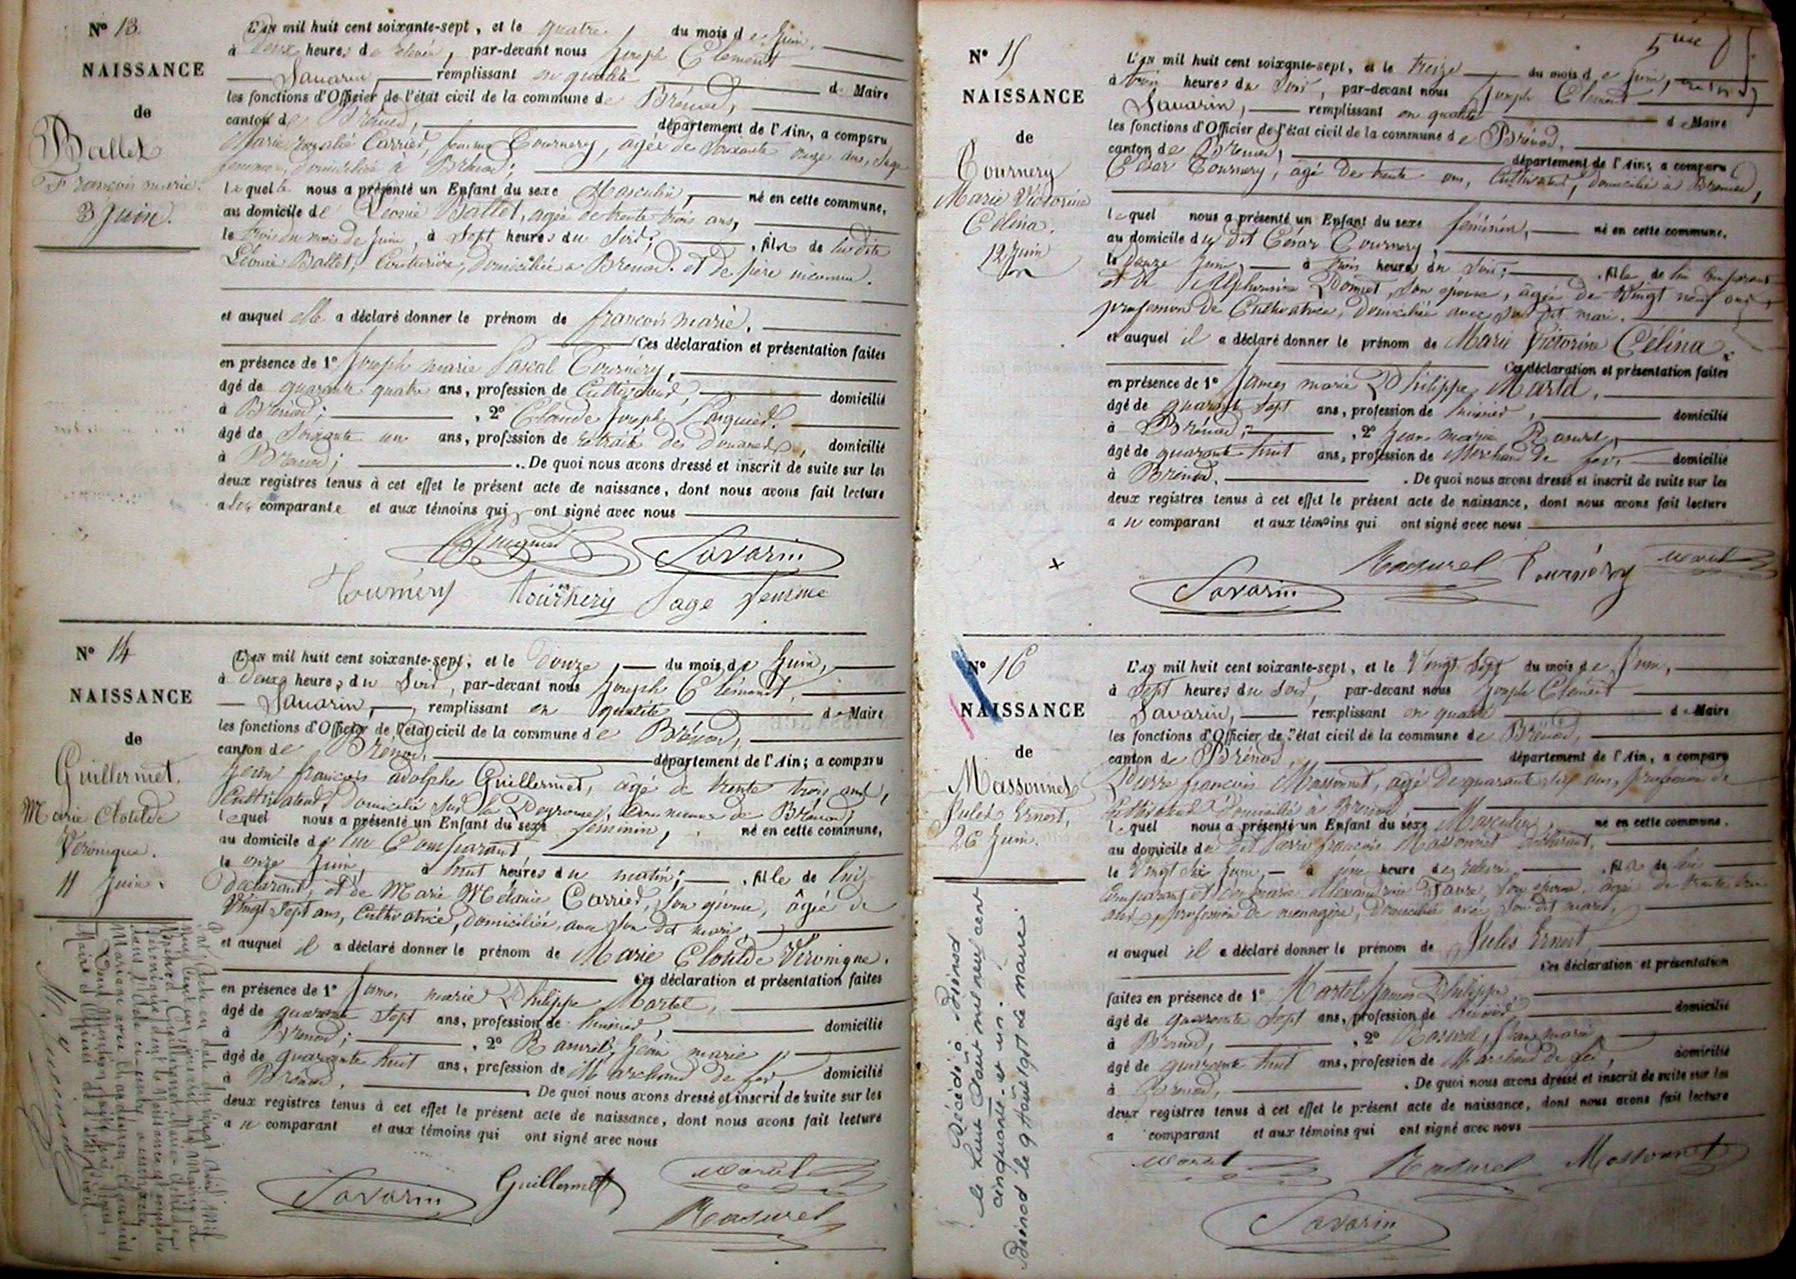 N° 13
NAISSANCE
de
Ballet
François marie.
3 Juin.
L'AN mil huit cent soixante-sept, et le quatre du mois de Juin,
à deux heures de relevée, par-devant nous Joseph Clément
Savarin, remplissant en qualité de Maire
les fonctions d'Officier de l'état civil de la commune de Brénod,
canton de Brénod, département de l'Ain, a comparu
Marie Carrier, femme Tournery, agée de soixante onze ans, Sage
femme, domiciliée à Brénod;
laquelle nous a présenté un Enfant du sexe Masculin, né en cette commune,
au domicile de Léonie Ballet, agée de trente trois ans,
le trois du mois de Juin, à Sept heures du Soir; fils de la dite
Léonie Ballet, Couturière, domiciliée à Brénod et de père inconnu.
et auquel elle a déclaré donner le prénom de françois marie.
Ces déclaration et présentation faites
en présence de 1° Joseph marie Pascal Tournery,
âgé de quarante quatre ans, profession de Cultivateur, domicilié
à Brénod; , 2° Claude Joseph
âgé de Soixante un ans, profession de retraité des Douanes, domicilié
à Brénod; . De quoi nous avons dressé et inscrit de suite sur les
deux registres tenus à cet effet le présent acte de naissance, dont nous avons fait lecture
a les comparante et aux témoins qui ont signé avec nous
Savarin
Tournery Tournery Sage femme
N° 14
NAISSANCE
de
Guillermet.
Marie Clotilde
Véronique.
11 Juin.
L'AN mil huit cent soixante-sept, et le douze, du mois de Juin,
à deux heures du Soir, par-devant nous Joseph Clément
Savarin, remplissant en qualité de Maire
les fonctions d'Officier de l'état civil de la commune de Brénod,
canton de Brénod, département de l'Ain; a comparu
Jean françois adolphe Guillermet, âgé de trente trois ans,
Cultivateur, domicilié sur la commune de Brénod,
lequel nous a présenté un Enfant du sexe féminin, né en cette commune,
au domicile du Comparant
le onze Juin, à huit heures du matin; , fille de lui
déclarant, et de Marie Mélanie Carrier, son épouse, âgée de
Vingt Sept ans, Cultivatrice, domiciliée, avec Son dit mari,
et auquel il a déclaré donner le prénom de Marie Clotilde Véronique.
Ces déclaration et présentation faites
en présence de 1° James marie Philippe Martel,
âgé de quarante Sept ans, profession de huissier, domicilié
à Brénod; , 2° Rasurel, Jean marie
âgé de quarante huit ans, profession de Marchand de fer domicilié
à Brénod. De quoi nous avons dressé et inscrit de suite sur les
deux registres tenus à cet effet le présent acte de naissance, dont nous avons fait lecture
a u comparant et aux témoins qui ont signé avec nous
Savarin Guillermet Martel
Rasurel
5me
N° 15
NAISSANCE
de
Tournery
Marie Victorine
Célina.
12 Juin
L'AN mil huit cent soixante-sept, et le treize du mois de Juin,
à trois heures du Soir, par-devant nous Joseph Clément
Savarin, remplissant en qualité de Maire
les fonctions d'Officier de l'état civil de la commune de Brénod,
canton de Brénod, département de l'Ain; a comparu
César Tournery, âgé de trente ans, Cultivateur, domicilié à Brénod,
lequel nous a présenté un Enfant du sexe féminin, né en cette commune,
au domicile du dit César Tournery,
le douze Juin, à trois heures du Soir; , fille de lui Comparant
et de Alphonsine Donnet, Son épouse, âgée de Vingt neuf ans,
profession de Cultivatrice, domiciliée avec Son dit mari.
et auquel il a déclaré donner le prénom de Marie Victorine Célina.
Ces déclaration et présentation faites
en présence de 1° James marie Philippe Martel,
âgé de quarante Sept ans, profession de huissier, domicilié
à Brénod; , 2° Jean marie Rasurel,
âgé de quarante huit ans, profession de Marchand de fer, domicilié
à Brénod. . De quoi nous avons dressé et inscrit de suite sur les
deux registres tenus à cet effet le présent acte de naissance, dont nous avons fait lecture
a u comparant et aux témoins qui ont signé avec nous
Rasurel Tournéry Martel
Savarin
N° 16
NAISSANCE
de
Massonnet
Jules Ernest,
26 Juin.
L'AN mil huit cent soixante-sept, et le Vingt Sept du mois de Juin,
à Sept heures du Soir, par-devant nous Joseph Clément
Savarin, remplissant en qualité de Maire
les fonctions d'Officier de l'état civil de la commune de Brénod,
canton de Brénod, département de l'Ain, a comparu
Pierre françois Massonnet, agé de quarante ans, profession de
Cultivateur domicilié à Brénod,
lequel nous a présenté un Enfant du sexe Masculin, né en cette commune.
au domicile du dit Pierre françois Massonnet déclarant,
le Vingt Six Juin, à une heure de relevée, fils de lui
Comparant et de marie Alexandrine Son épouse, agée de trente
ans, profession de menagère, domiciliée avec Son dit mari,
et auquel il a déclaré donner le prénom de Jules Ernest,
Ces déclaration et présentation
faites en présence de 1° Martel James Philippe,
âgé de quarante Sept ans, profession de huissier domicilié
à Brénod, , 2° Rasurel, Jean marie
âgé de quarante huit ans, profession de Marchand de fer, domicilié
à Brénod, . De quoi nous avons dressé et inscrit de suite sur les
deux registres tenus à cet effet le présent acte de naissance, dont nous avons fait lecture
a comparant et aux témoins qui ont signé avec nous
Martel Rasurel Massonnet
Savarin
Décédé à Brénod
le trente Août mil neuf cent
cinquante et un.
Brénod le 9 Août 1951 Le maire.